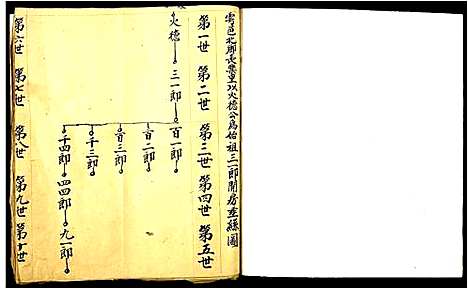 寧邑北鄉長樂里以火德公為始祖三一郎開房垂絲圖
第一世 第二世 第三世 第四世 第五世
火德 三一郎 百一郎
百二郎
百三郎
千三郎
千四郎 四四郎 九一郎
第六世 第七世 第八世 第九世 第十世